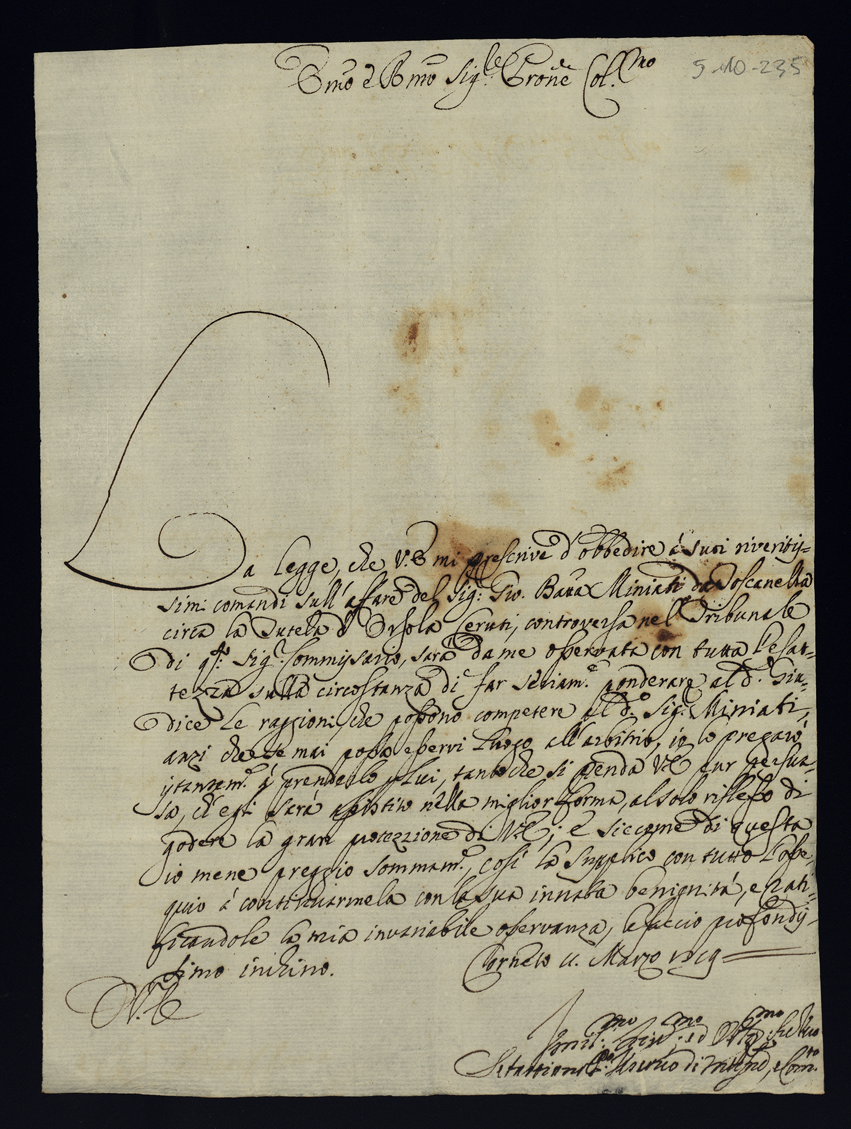 5-10-235
Emo e Rmo Sig.re Prone Col.mo
La legge, che V.E mi prescrive d'obbedire à suoi riveritis=
simi comandi sull'affare del Sig: Gio. Batta Miniati da Toscanella
circa la Tutela d'Orsola Ceruti, controversa nel Tribunale
di qto Sig. Commissario, sarà da me osservata con tutta l'esat=
tezza sulla circostanza di far seriam.te ponderare al d.o Giu=
dice le raggioni che possono competere al d.o Sig: Miniati,
anzi che se mai possa esservi luogo all'arbitrio, io lo pregarò
istantem.te à prenderlo p Lui, tanto che si renda V.E pur persua=
sa, ch'egli sarà assistito nella miglior forma, al solo riflesso di
godere la gran protezzione di V.E; E siccome di questa
io mene preggio sommam.te, così la supplico con tutto l'osse=
quio à continuarmela con la sua innata benignità, e rati=
ficandole la mia invariabile osservanza, le faccio profondis=
simo inchino.
Corneto 11. Marzo
V.E
Umil.mo ed Obl.mo